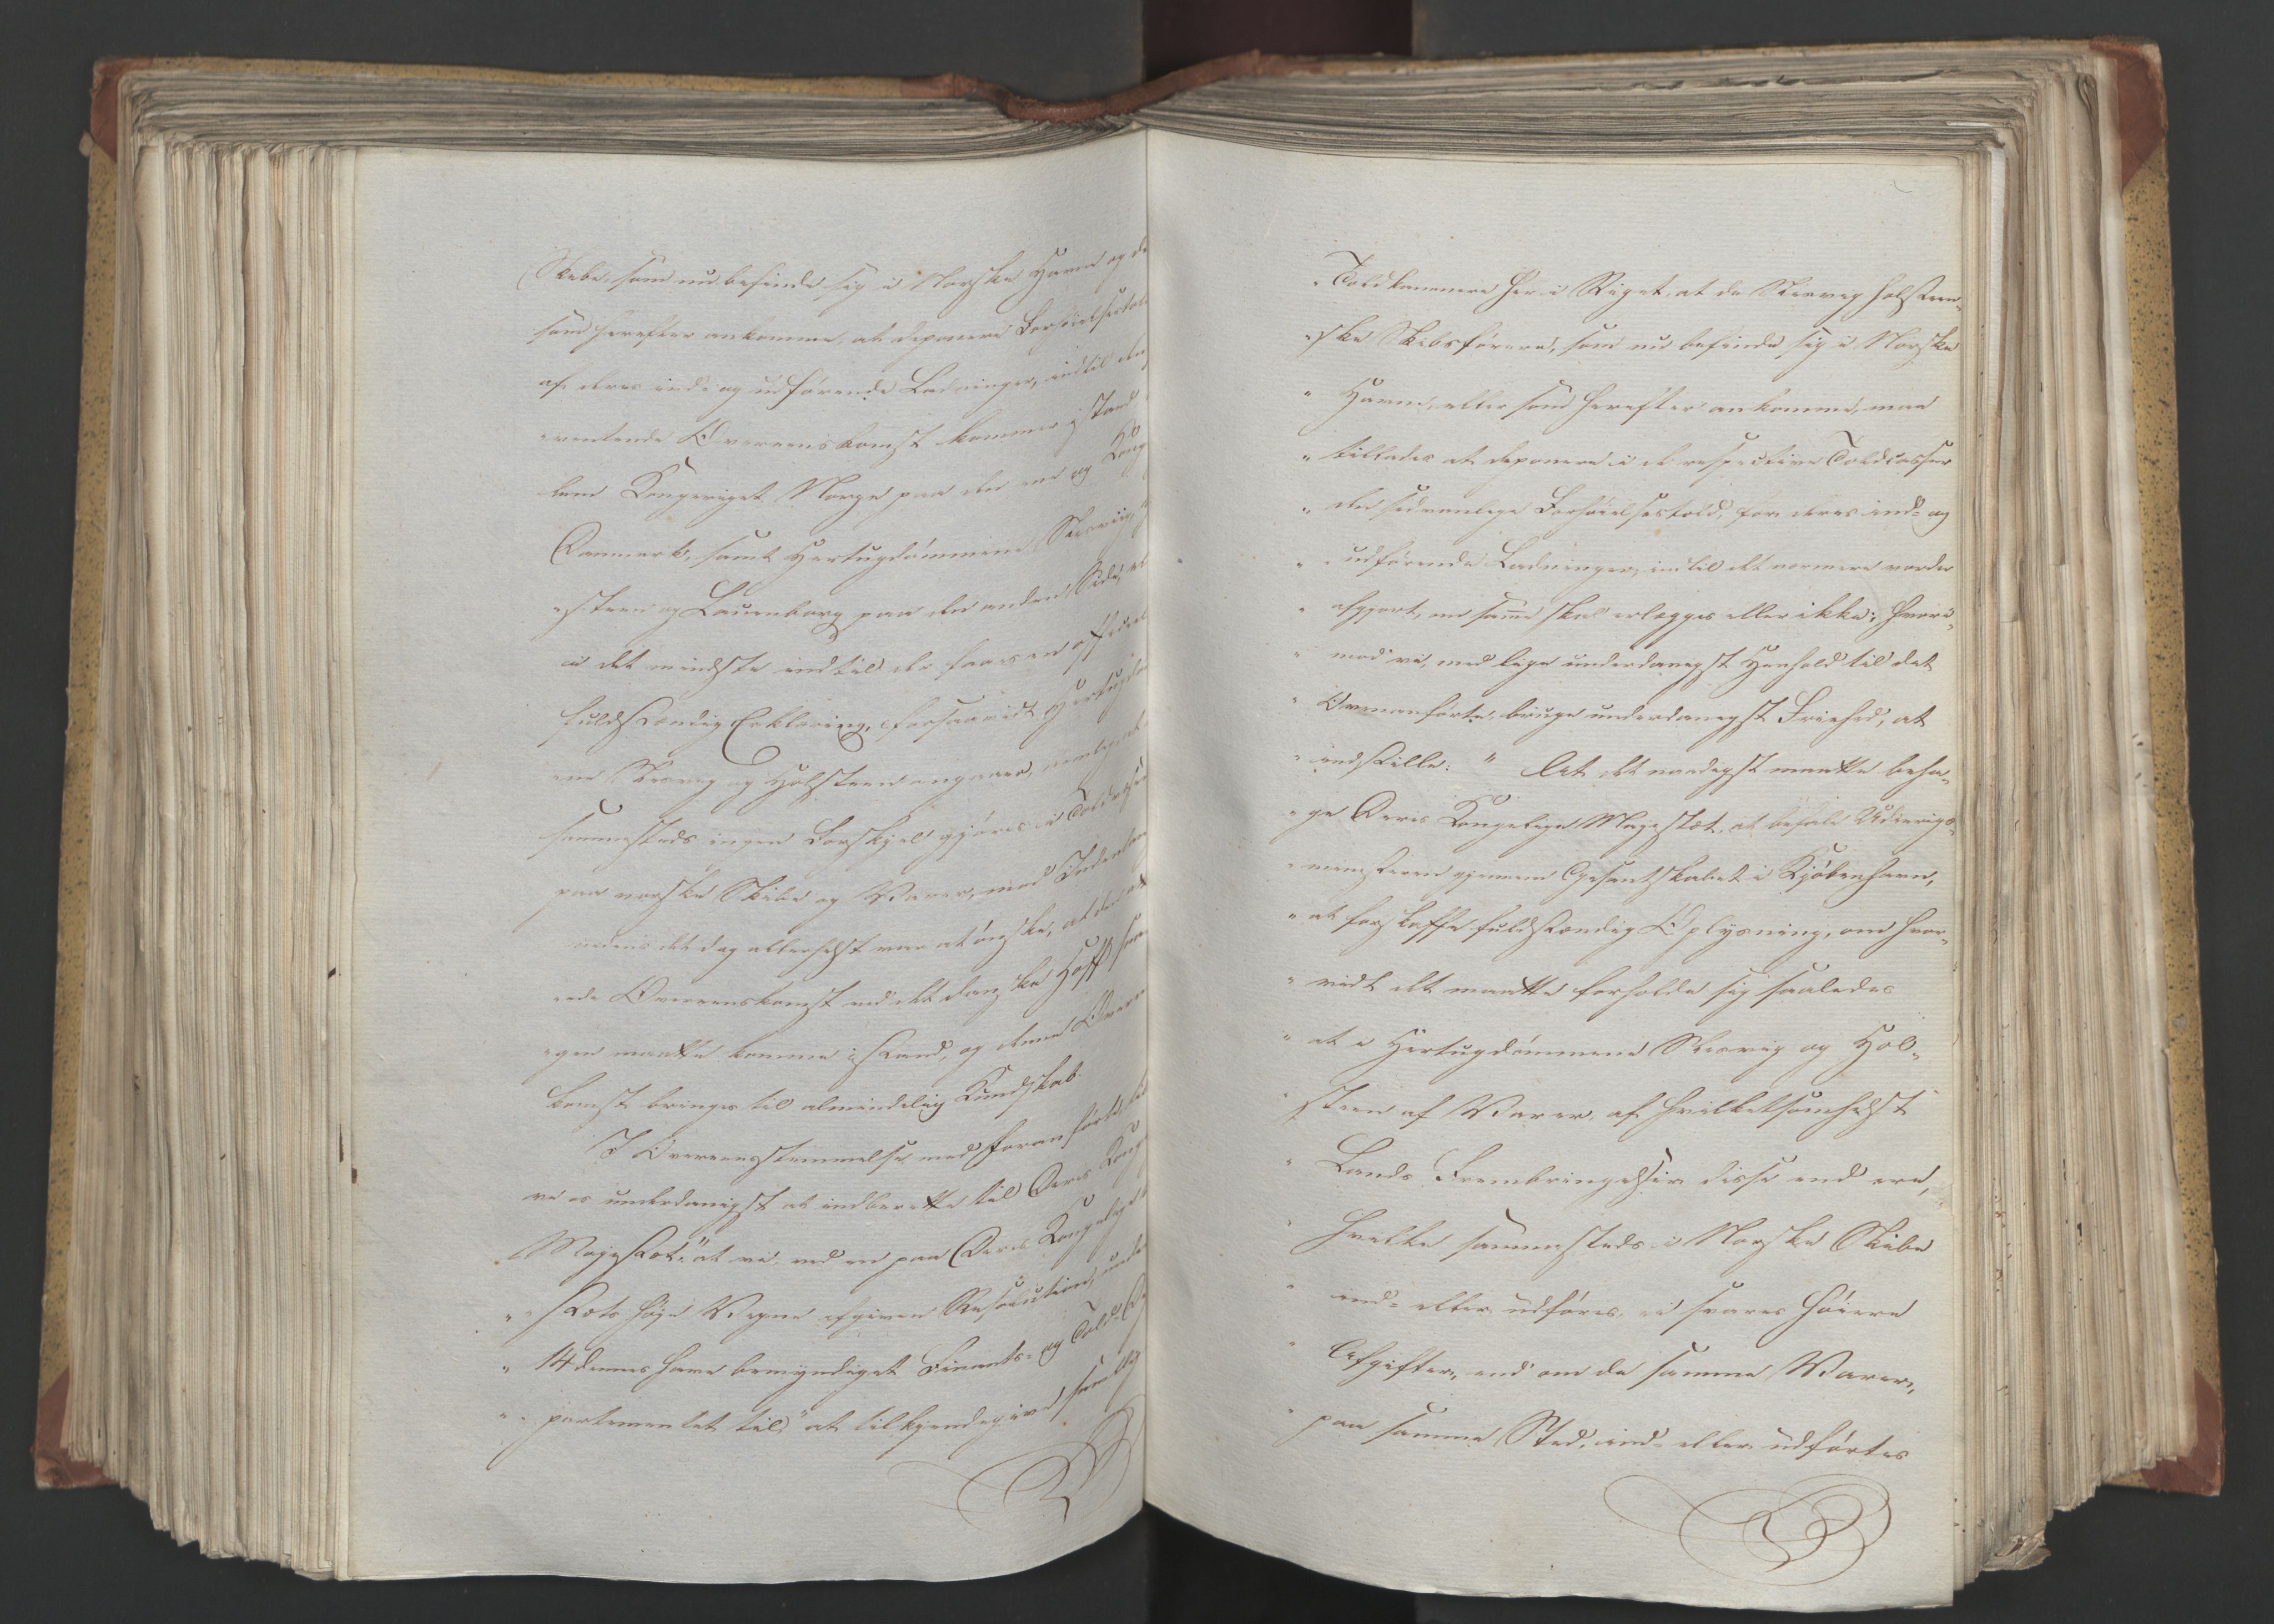 Skibe, som nu befinde sig i Norske Havne og de
som herefter ankomme, at deponere Forhøielsestold
af deres ind- og udførende Ladninger, indtil den
ventende Overeenskomst kommer istand
lem Kongeriget Norge paa den ene og Kong
Danmark, samt Hertugdømmene Slesvig,
steen og Lauenborg paa den anden Side, el
i det mindste indtil der haves en officiel
fuldstændig Erklæring, forsaavidt Hertugdøm
ene Slesvig og Holsteen angaaer, nemlig at
sammesteds ingen Forskjel gjøres i Toldafgi
paa norske Skibe og Varer, mod Indenlan
medens det dog allerhelst var at ønske, at den
ede Overeenskomst med det danske Hoff
gen maatte komme istand, og denne Overeens
komst bringes til almindelig Kundskab.
I Overeensstemmelse med foranførte,
vi os underdanigst at indberette til Deres Konge
Majestæt: "at vi, ved en paa Deres Kongelige
" stæts høie Vegne afgiven Resolution, under
" 14 dennes have bemyndiget Finants- og Told-De
" partementet til" at tilkjendegive samtlige
" Toldkamrene her i Riget, at de Slesvig holsteen-
" ske Skibsførere, som nu befinde sig i Norske
" Havne, eller som herefter ankomme, maa
" tillades at deponere i de respective Toldcasser
" den sædvanlige Forhøielsestold, for deres ind- og
" udførende Ladninger, indtil det nærmere vorder
" afgjort, om samme skal erlægges eller ikke; hvori-
" mod vi, med lige underdanigst Henhold til det
" Ovenanførte, bruge underdanigst Friehed, at
" indstille: " At det naadigst maatte beha-
" ge Deres Kongelige Majestæt, at befale Udenrigs-
" ministeren gjennem Gesantskabet i Kjøbenhavn,
" at forskaffe fuldstændig Oplysning, om hvor-
" vidt det maatte forholde sig saaledes
" at i Hertugdømmene Slesvig og Hol-
" steen af Varer, af hvilketsomhelst
" Lands Frembringelser disse end ere,
" hvilke sammesteds i Norske Skibe
" ind- eller udføres, ei svares høiere
" Afgifter, end om de samme Varer,
" paa samme Sted, ind- eller udførtes